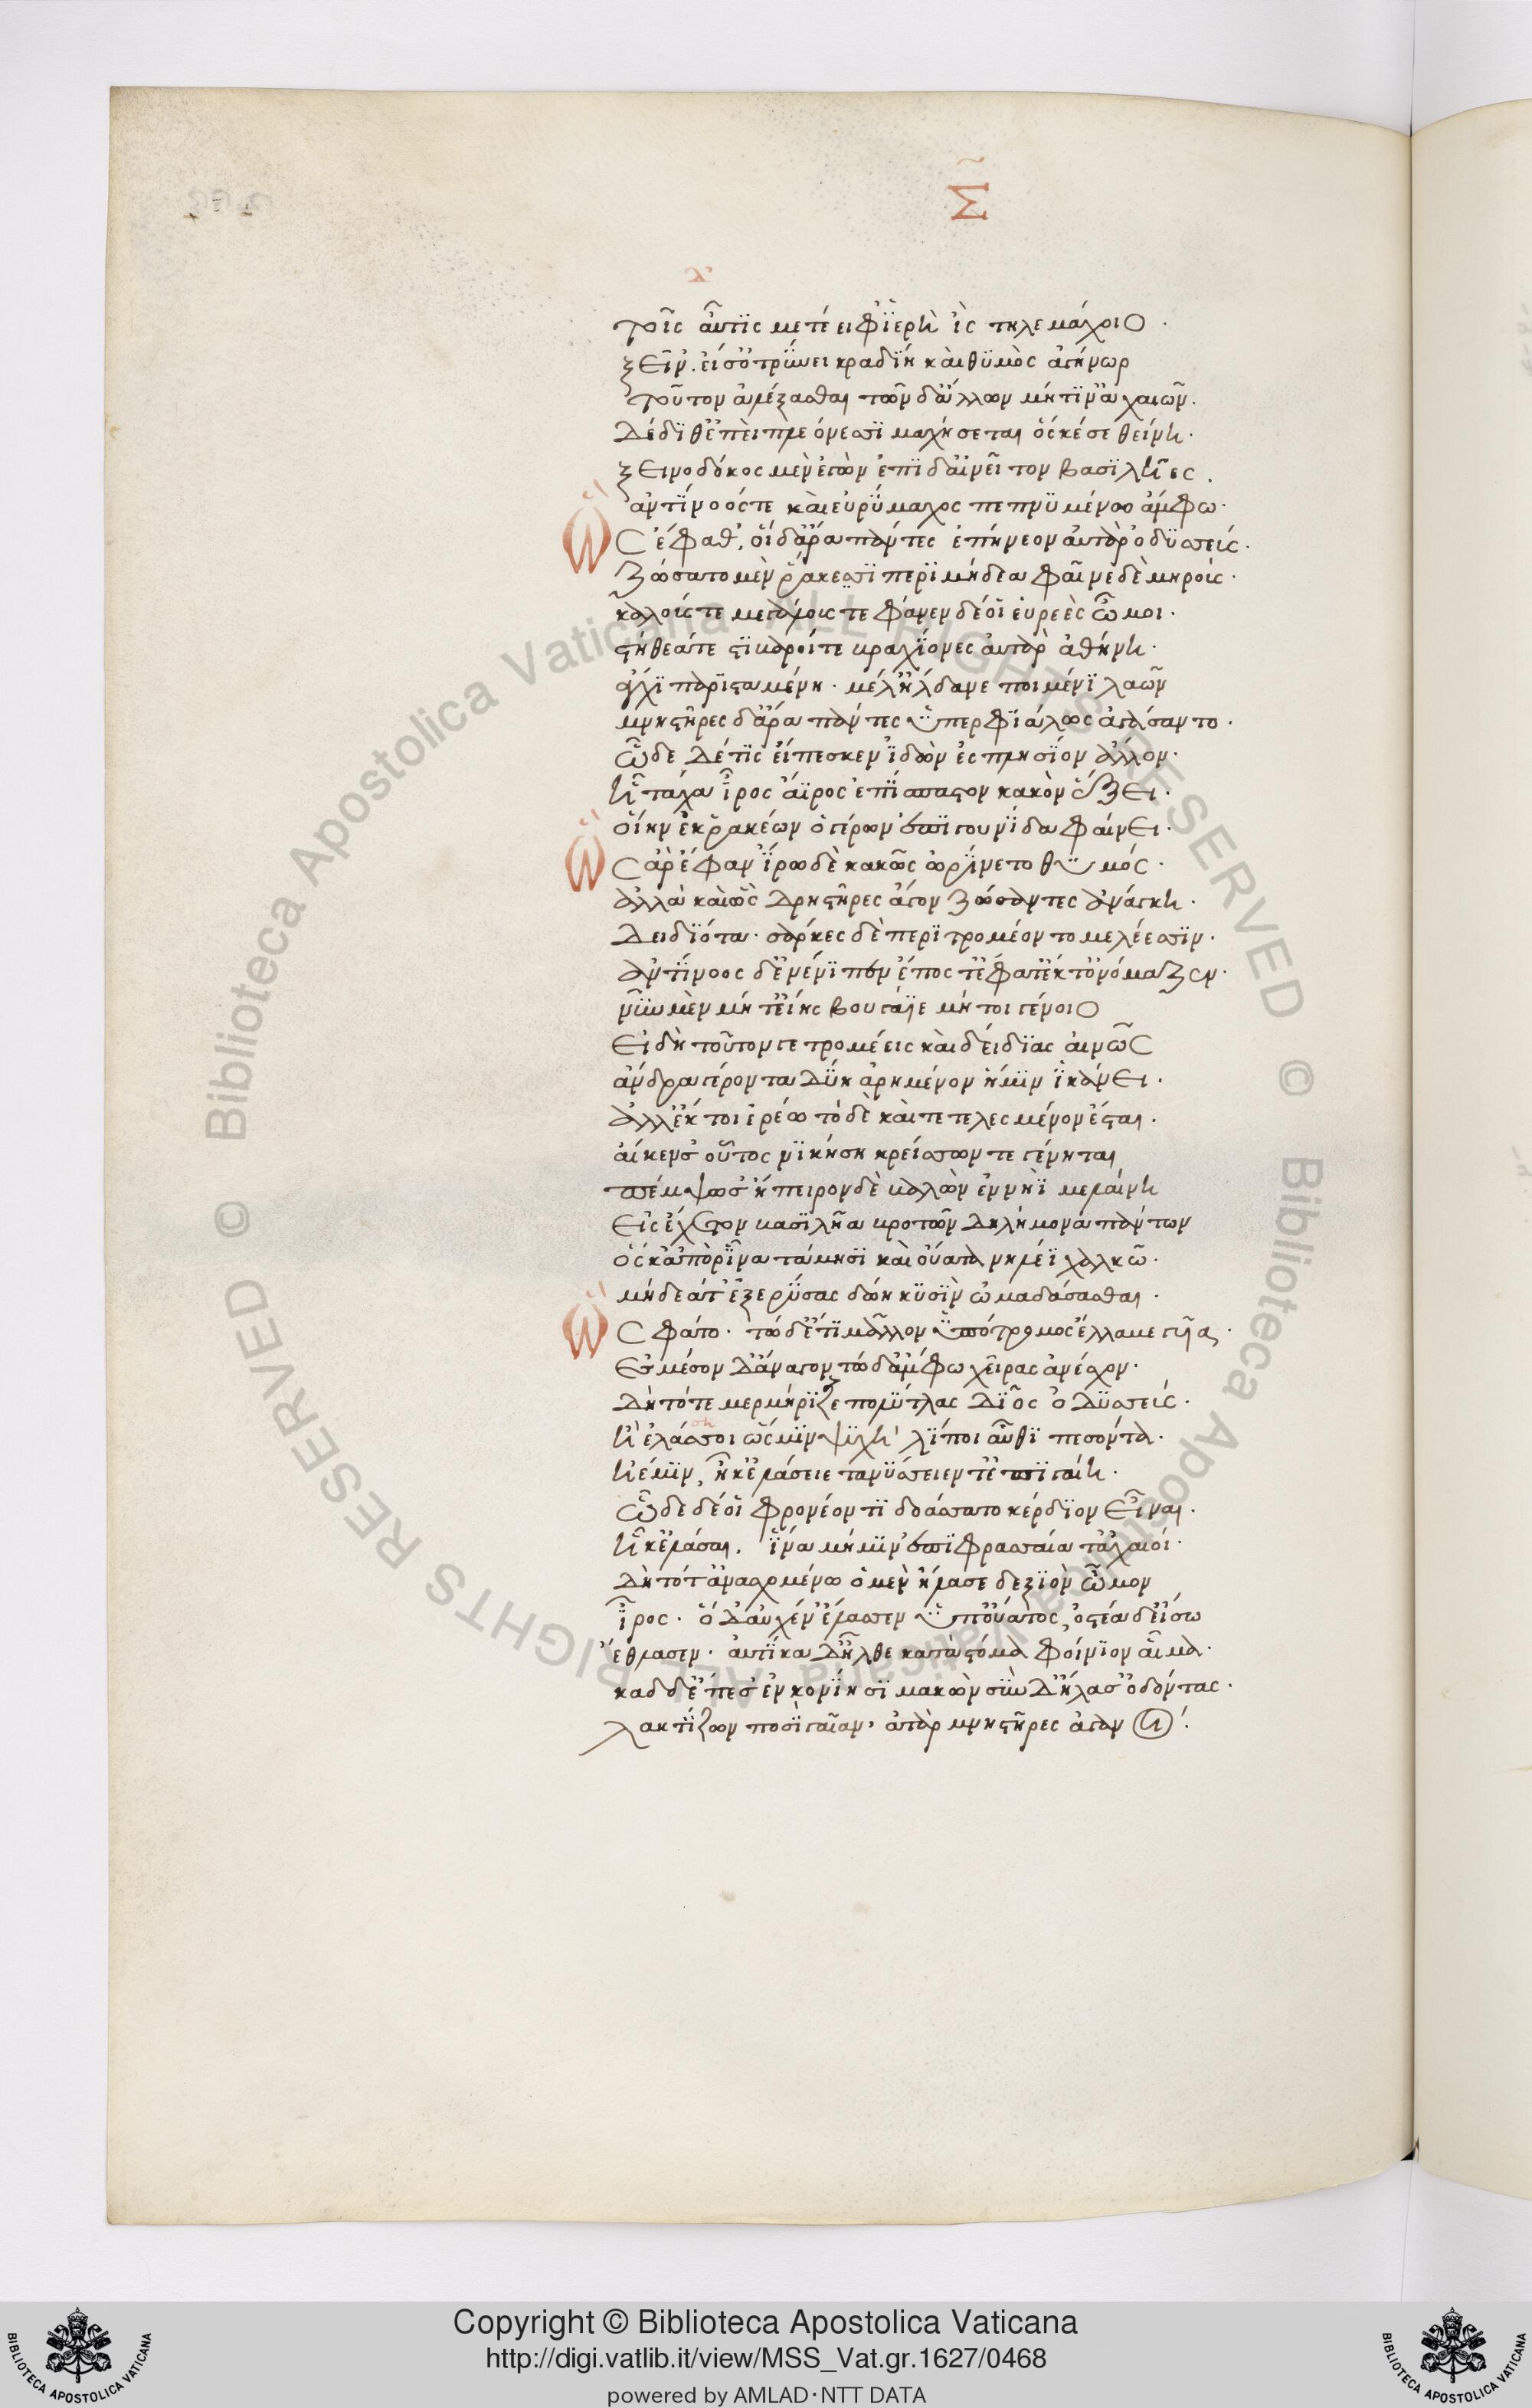 Σ
τοῖς αὖτις μετέειφ' ἱερὴ ἲς τηλεμάχοιο.
ξεῖν'. εἴ σ' ὀτρύνει κραδίη καὶ θυμὸς ἀγήνωρ
τοῦτον ἀλέξασθαι τῶν δ' ἄλλων μήτιν' ἀχαιῶν.
δέδιθ' ἐπεὶ πλεόνεσσι μαχήσεται ὅς κέ σε θείνῃ.
ξεινοδόκος μὲν ἐγὼν ἐπὶ δ' αἰνεῖτον βασιλῆες.
ἀντίνοός τε καὶ εὐρύμαχος πεπνυμένω ἄμφω.
Ὣς ἔφαθ', οἱ δ' ἄρα πάντες ἐπήνεον αὐτὰρ ὀδυσσεύς.
ζώσατο μὲν ῥάκεσσι περὶ μήδεα φαῖνε δὲ μηρούς.
καλούς τε μεγάλους τε φάνεν δέ οἱ εὐρέες ὦμοι.
στήθεά τε στιβαροί τε βραχίονες αὐτὰρ ἀθήνη.
ἄγχι παρισταμένη. μέλε' ἤλδανε ποιμένι λαῶν
μνηστῆρες δ' ἄρα πάντες ὑπερφιάλως ἀγάσαντο.
ὧδε δέ τις εἴπεσκεν ἰδὼν ἐς πλησίον ἄλλον.
ἦ τάχα ἶρος ἄϊρος ἐπίσπαστον κακὸν ἕξει.
οἵην ἐκ ῥακέων ὁ γέρων ἐπιγουνίδα φαίνει.
Ὣς ἄρ' ἔφαν ἴρω δὲ κακῶς ὠρίνετο θυμός.
ἀλλὰ καὶ ὣς δρηστῆρες ἄγον ζώσαντες ἀνάγκη.
δειδιότα. σάρκες δὲ περιτρομέοντο μελέεσσιν.
ἀντίνοος δ' ἐνένιπεν ἔπος τ' ἔφατ' ἔκ τ' ὀνόμαζεν.
νῦν μὲν μήτ' εἴης βουγάϊε μήτε γένοιο
εἰ δὴ τοῦτόν γε τρομέεις καὶ δείδιας αἰνῶς
ἄνδρα γέροντα δύη ἀρημένον ἥ μιν ἱκάνει.
ἀλλ' ἔκ τοι ἐρέω τὸ δὲ καὶ τετελεσμένον ἔσται.
αἴ κέν σ' οὗτος νικήση κρείσσων τε γένηται
πέμψω σ' ἤπειρόνδε βαλὼν ἐν νηῒ μελαίνη
εἰς ἔχετον βασιλῆα βροτῶν δηλήμονα πάντων
ὅς κ' ἀπὸ ῥῖνα τάμησι καὶ οὔατα νηλέϊ χαλκῶ.
μήδεά τ' ἐξερύσας δώη κυσὶν ὠμὰ δάσασθαι.
Ὣς φάτο. τῶ δ' ἔτι μᾶλλον ὑπὸ τρόμος ἔλλαβε γυῖα.
ἐς μέσον δ' ἄναγον τὼ δ' ἄμφω χεῖρας ἀνέσχον.
δὴ τότε μερμήριξε πολύτλας δῖος ὀδυσσεύς.
ἢ ἐλάσσοι ὥς μιν ψυχὴ λίποι αὖθι πεσόντα.
ἦέ μιν, ἦκ' ἐλάσειε τανύσσειέν τ' ἐπὶ γαίη.
ὧδε δέ οἱ φρονέοντι δοάσσατο κέρδιον εἶναι.
ἦκ' ἐλάσαι. ἵνα μή μιν ἐπιφρασσαίατ' ἀχαιοί.
δὴ τότ' ἀνασχομένω ὁ μὲν ἤλασε δεξιὸν ὦμον
ἶρος. ὁ δ' αὐχέν' ἔλασσεν ὑπ' οὔατος, ὀστέα δ' εἴσω
ἔθλασεν. αὐτίκα δ' ἦλθε κατὰ στόμα φοίνιον αἷμα.
καδ δ' ἔπεσ' ἐν κονίησι μακὼν σὺν δ' ἤλασ' ὀδόντας.
λακτίζων ποσὶ γαῖαν, ἀτὰρ μνηστῆρες ἀγαυοί.
Copyright © Biblioteca Apostolica Vaticana
http://digi.vatlib.it/view/MSS_Vat.gr.1627/0468
powered by AMLAD·NTT DATA